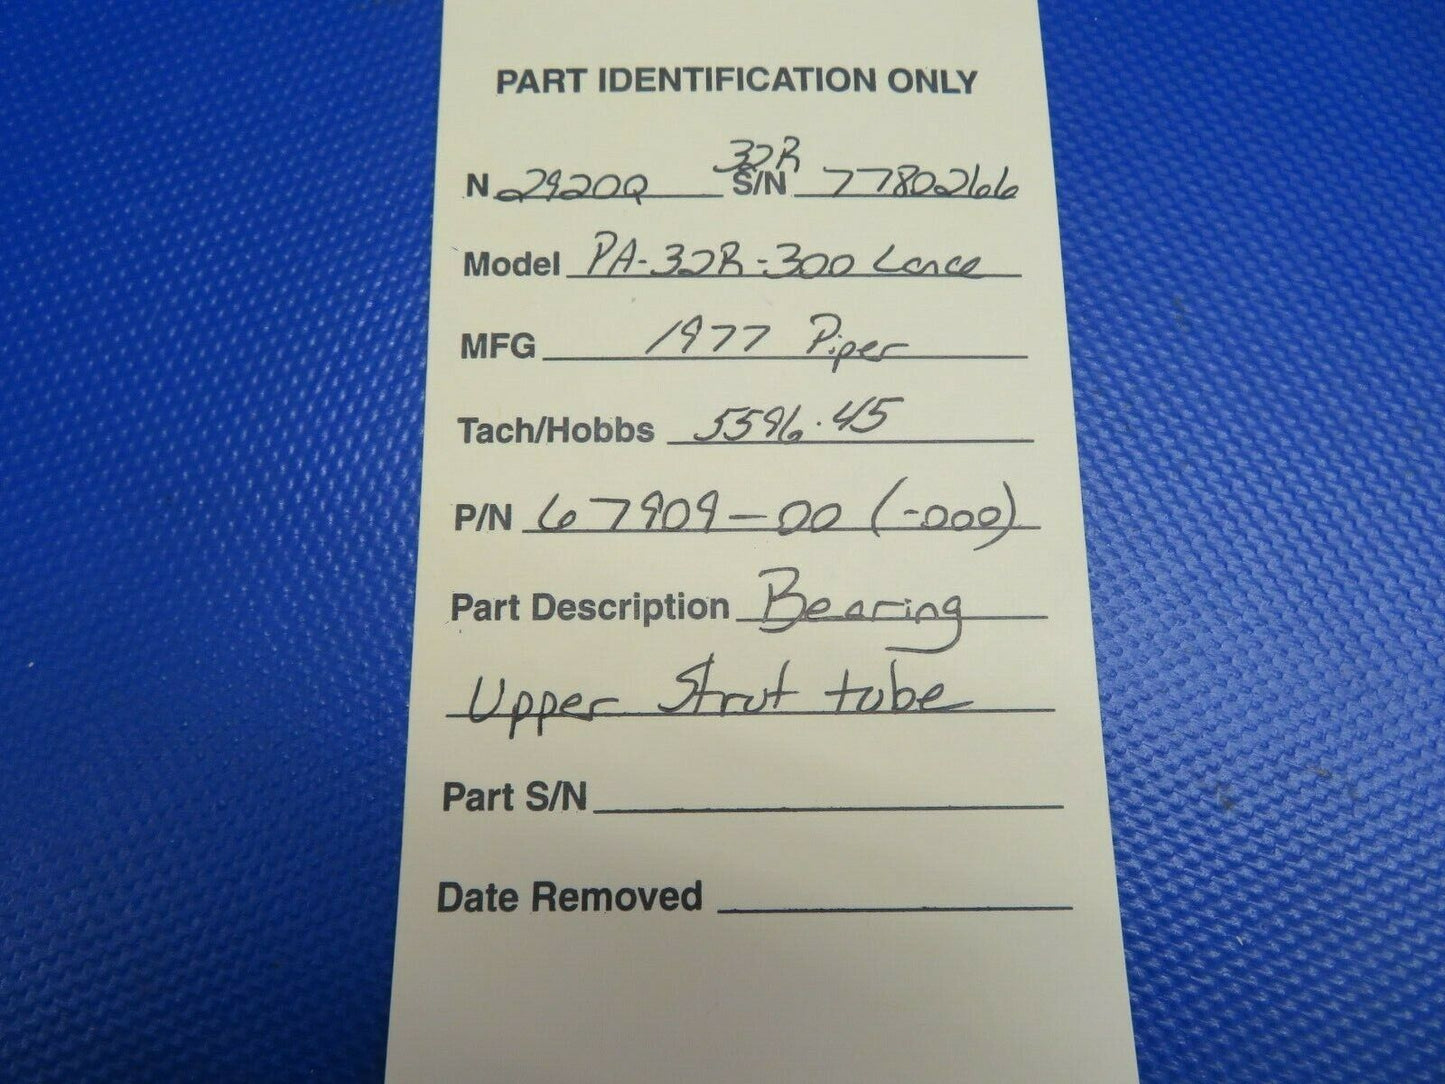 PART IDENTIFICATION ONLY
32R
N 2920Q S/N 7780266
Model PA-32R-300 Lance
MFG 1977 Piper
Tach/Hobbs 5596.45
P/N 67909-00 (-000)
Part Description Bearing
Upper Strut tube
Part S/N
Date Removed